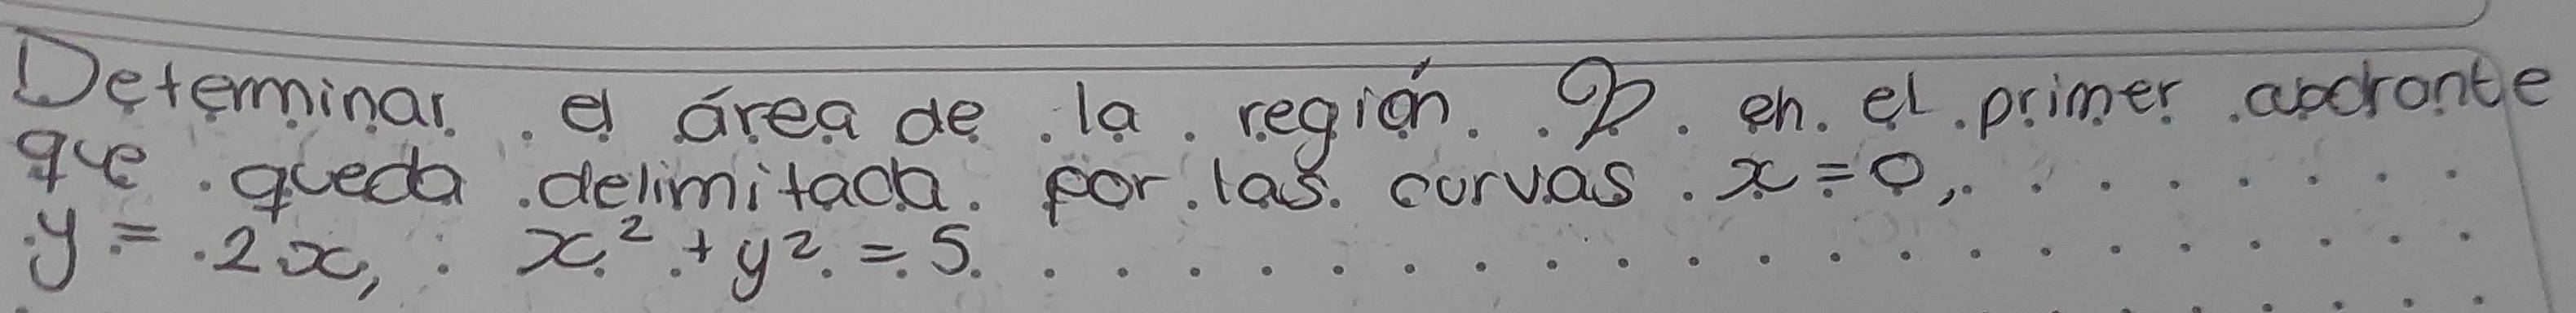 Determinar el área de la región D en el primer cuadrante
que queda delimitada por las curvas x=0,
y = 2x, x² + y² = 5